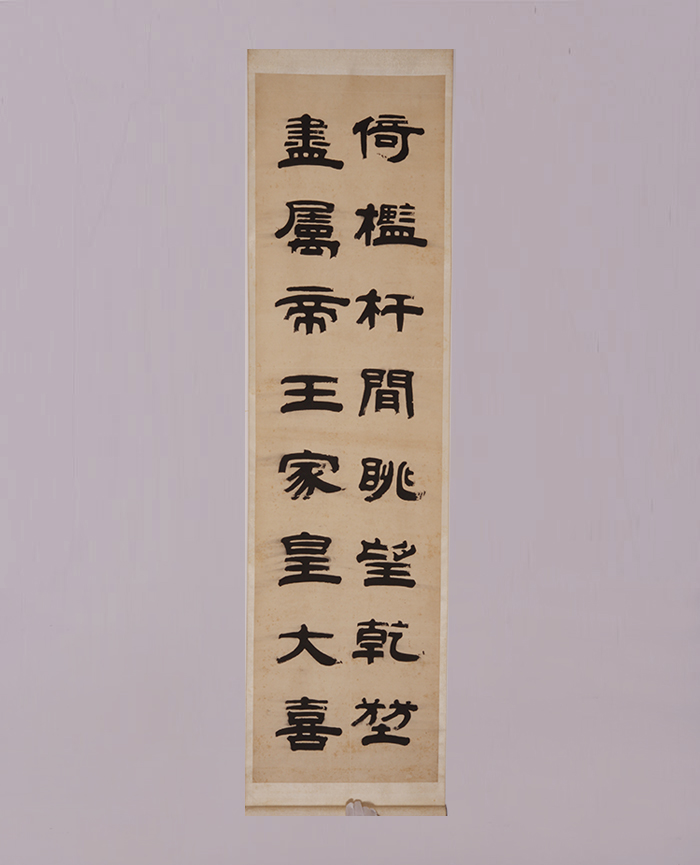 倚檻杆間眺望乾堃
盡屬帝王家皇大喜